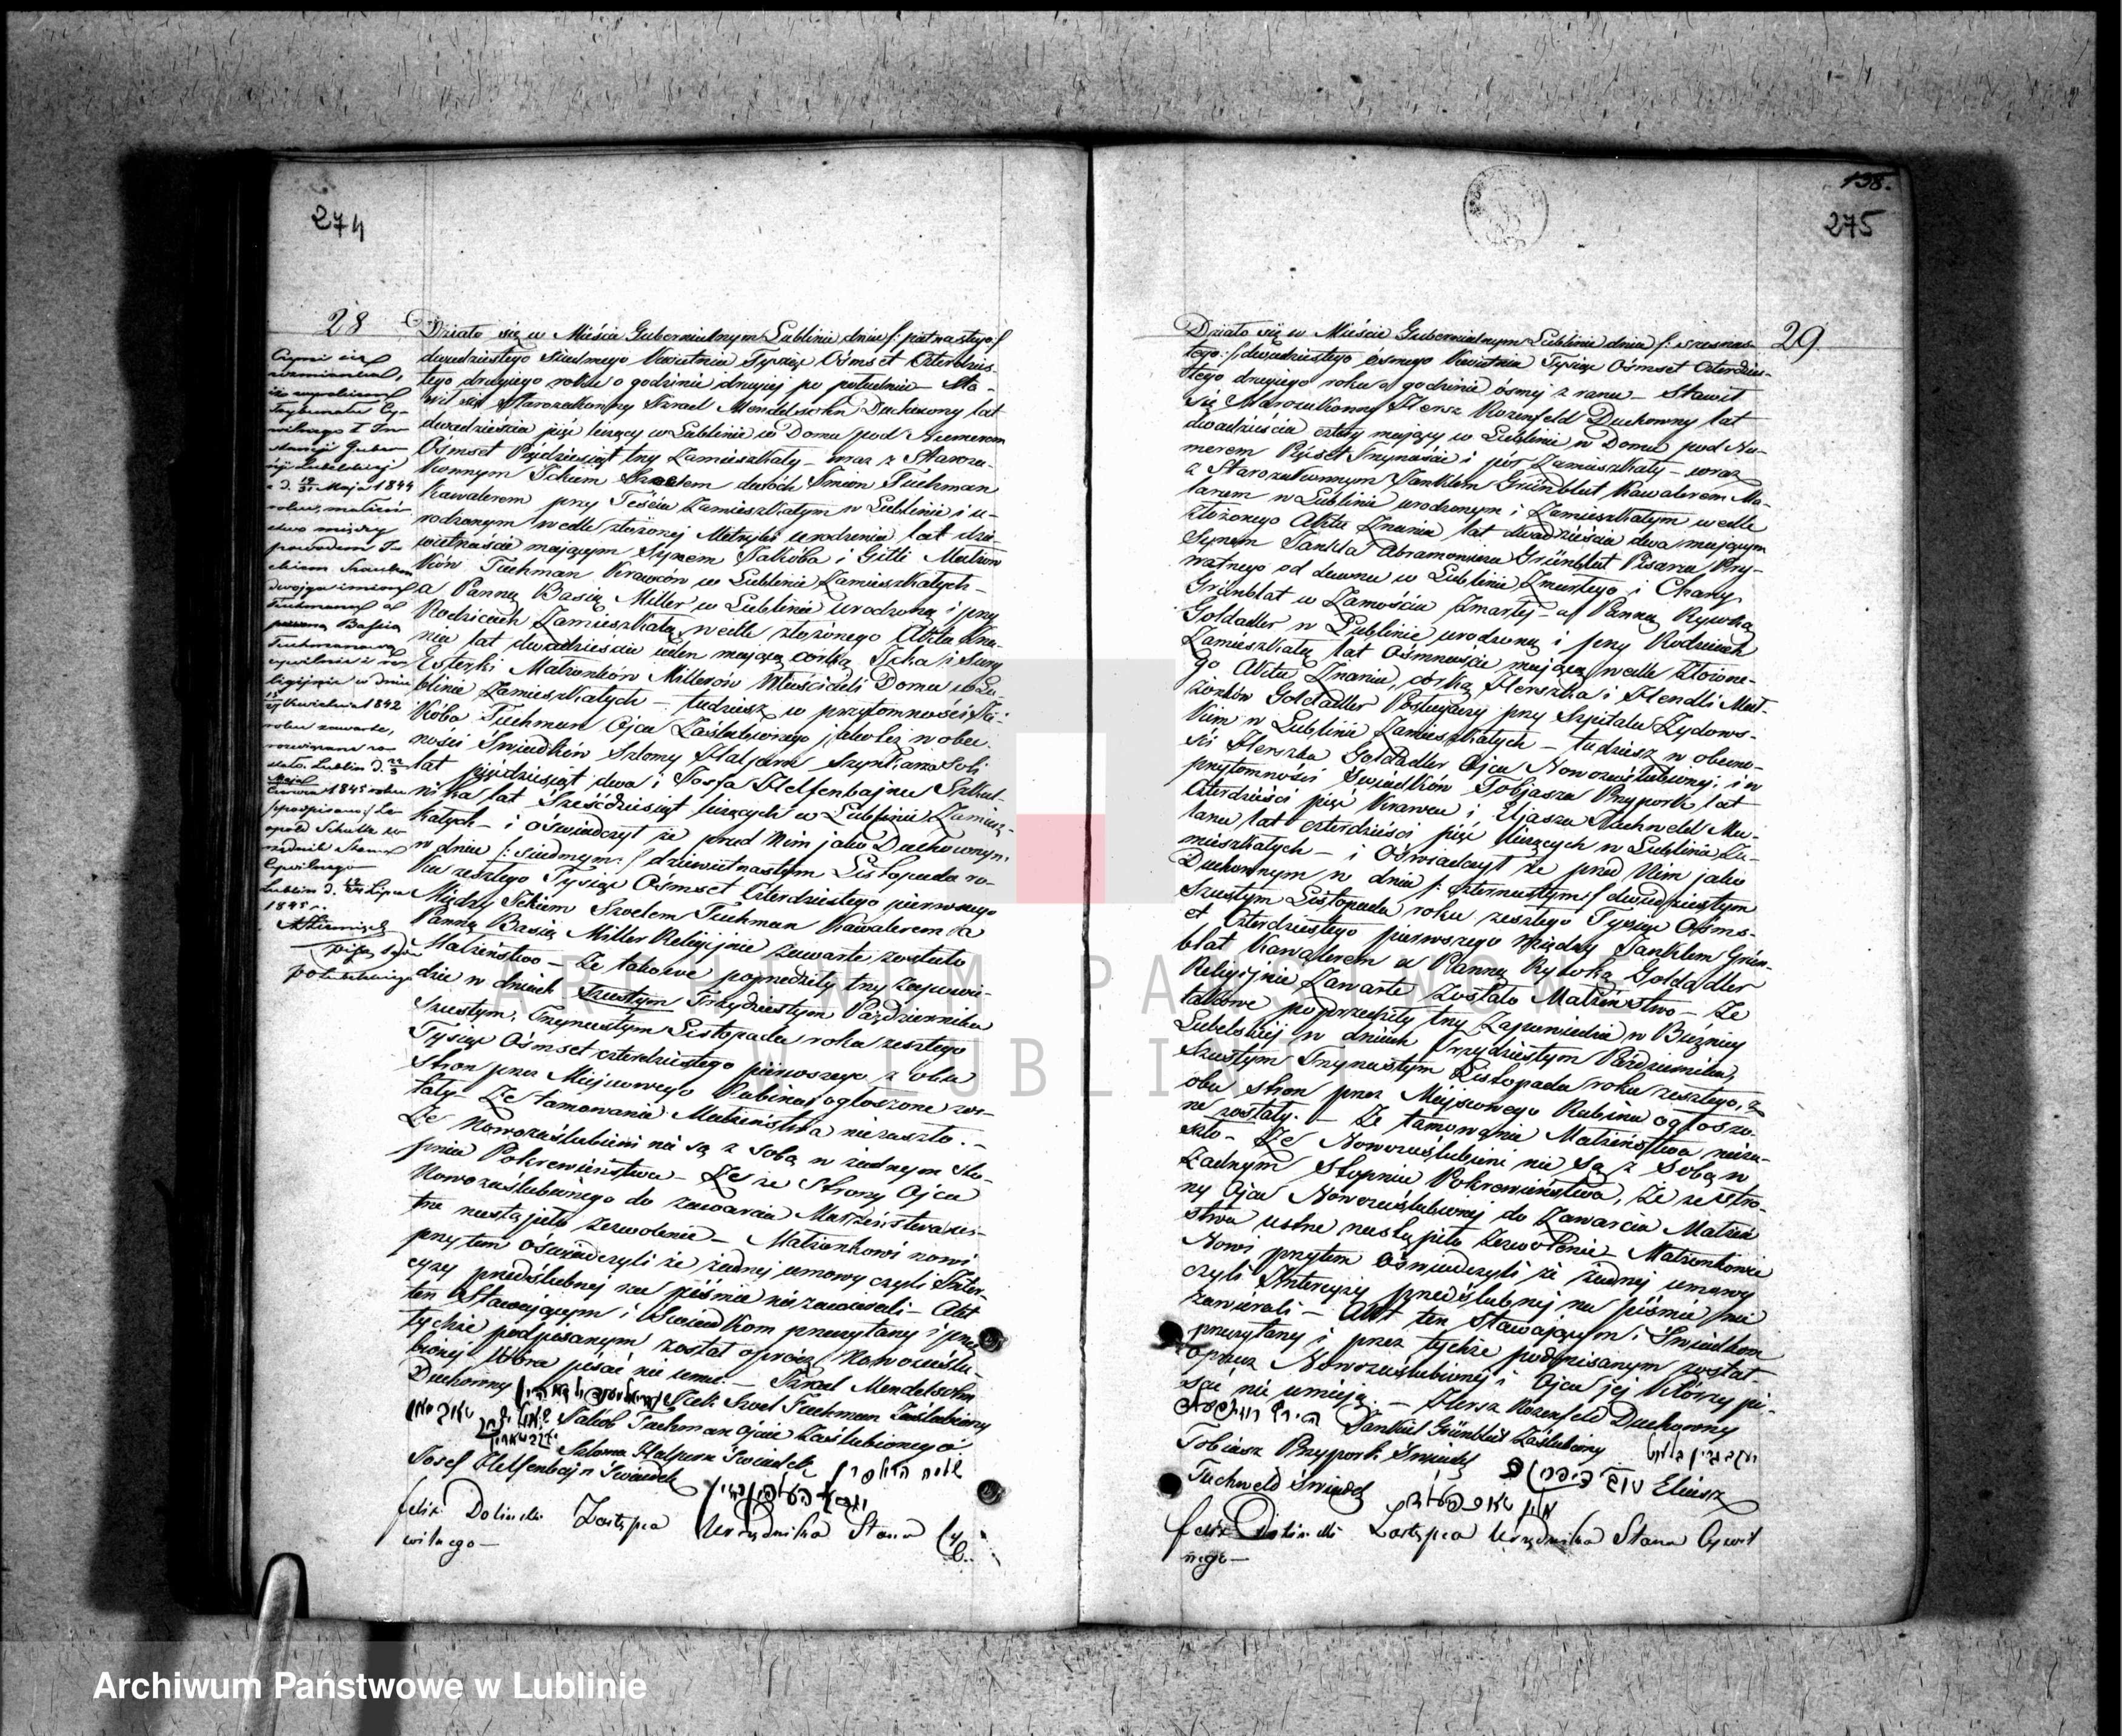 274
28
Działo się w Mieście Gubernialnym Lublinie dnia /: piętnastego /
dwudziestego siódmego Kwietnia Tysiąc Ośmset Czterdzies-
tego drugiego roku o godzinie drugiej po południu – Sta-
wił się Starozakonny Izrael Mendelsohn Duchowny lat
dwadzieścia pięć liczący w Lublinie w Domu pod Numerem
Ośmset Pięćdziesiąt trzy Zamieszkały – wraz z Staroza-
konnym Ickiem Szoelem dwóch Imion Fuchman
Kawalerem przy Teściu Zamieszkałym w Lublinie i u-
rodzonym wedle złożonej Metryki urodzenia lat dzie-
więtnaście mającym Synem Jakóba i Gitli Małżon
ków Fuchman Krawców w Lublinie Zamieszkałych –
a Panną Basią Miller w Lublinie urodzoną i przy
Rodzicach Zamieszkałą wedle złożonego Aktu Zna-
nia lat dwadzieścia jeden mającą córką Icka i Sury
Esterki Małżonków Millerów Właścicieli Domu w Lu-
blinie Zamieszkałych – tudzież w przytomności Ja-
kóba Fuchman Ojca Zaślubionego jako też w obec-
ności Świadków Szlomy Halpern Szynkarza Soli
lat pięćdziesiąt dwa i Josfa Helfenbajna Szkol-
nika lat Sześćdziesiąt liczących w Lublinie Zamiesz-
kałych – i oświadczył że przed Nim jako Duchownym
w dniu /: siódmym :/ dziewiętnastym Listopada ro-
ku zeszłego Tysiąc Ośmset Czterdziestego pierwszego
Między Ickiem Szoelem Fuchman Kawalerem a
Panną Basią Miller Religijnie zawarte zostało
Małżeństwo – Że takowe poprzedziły trzy Zapowie-
dzie w dniach Trzydziestym Października
Szóstym, Trzynastym Listopada roku zeszłego
Tysiąc Ośmset czterdziestego pierwszego z obu
Stron przez Miejscowego Rabina ogłoszone zos-
tały – Że tamowanie Małżeństwa nie zaszło. –
Że Nowozaślubieni nie są z sobą w żadnym Sto-
pniu Pokrewieństwa – Że ze Strony Ojca
Nowozaślubionego do zawarcia Małżeństwa us-
tne nastąpiło zezwolenie – Małżonkowie nowi
przytem oświadczyli że żadnej umowy czyli Inter-
cyzy przedślubnej na piśmie nie zawierali – Akt
ten Stawającym i Świadkom przeczytany i przez
tychże podpisanym został oprócz Nowozaślu-
bionej która pisać nie umie. – Izrael Mendelsohn
Duchowny Icek Szoel Fuchman Zaślubiony
Jakób Fuchman Ojciec Zaślubionego
Szloma Halpern Świadek
Josef Helfenbajn Świadek
Felix Doliński Zastępca Urzędnika Stanu Cy
wilnego –
Czyni się
wzmiankę,
iż wyrokiem
Trybunału Cy-
wilnego I. In-
stancji Guber-
nji Lubelskiej
z d. 19/31 Maja 1844
roku, małżeń-
stwo między
powodem I-
ckiem Szoelem
dwojga imion
Fuchmanem a
pozwaną Basią
Fuchmanową
cywilnie i re-
ligijnie w dniu
15/27 Kwietnia 1842
roku zawarte,
rozwiązane zo-
stało. Lublin d. 22/3
Maja/Czerwca 1845 roku
/podpisano/ Le-
opold Schultz U-
rzędnik Stanu
Cywilnego
Lublin d. Lipca
1845 r.
138.
275
29.
Działo się w Mieście Gubernialnym Lublinie dnia /: szesnas-
tego :/ dwudziestego ósmego Kwietnia Tysiąc Ośmset Czterdzie-
stego drugiego roku o godzinie ósmej z rana – Stawił
się Starozakonny Hersz Rozenfeld Duchowny lat
dwadzieścia cztery mający w Lublinie w Domu pod Nu-
merem Pięćset Trzynaście i pół Zamieszkały – wraz
z Starozakonnym Janklem Grünblat Kawalerem Mu-
larem w Lublinie urodzonym i Zamieszkałym wedle
złożonego Aktu Znania lat dwadzieścia dwa mającym
Synem Jankla Abramowicza Grünblat Pisarza Pry-
watnego od dawna w Lublinie Zmarłego i Chany
Grünblat w Zamościu Zmarłej – a Panną Rywką
Goldadler w Lublinie urodzoną i przy Rodzicach
Zamieszkałą lat Ośmnaście mającą wedle złożone-
go Aktu Znania, córką Herszka i Hendli Mał-
żonków Goldadler Posługaczy przy Szpitalu Żydows-
kim w Lublinie Zamieszkałych – tudzież w obecno-
ści Herszka Goldadler Ojca Nowozaślubionej i w
przytomności Świadków Tobjasza Przyworh lat
Czterdzieści pięć Krawca i Eljasza Tuchweld Mu-
larza lat czterdzieści pięć liczących w Lublinie Za-
mieszkałych – i Oświadczył że przed Nim jako
Duchownym w dniu /: czternastym :/ dwudziestym
Szóstym Listopada roku zeszłego Tysiąc Ośms-
et Czterdziestego pierwszego między Janklem Grün-
blat Kawalerem a Panną Rywką Goldadler
Religijnie Zawarte Zostało Małżeństwo – Że
takowe poprzedziły trzy Zapowiedzie w Bóżnicy
Lubelskiej w dniach Trzydziestym Października,
Szóstym Trzynastym Listopada roku zeszłego, z
obu Stron przez Miejscowego Rabina ogłoszo-
ne zostały. – Że tamowanie Małżeństwa nieza-
szło – Że Nowozaślubieni nie są z Sobą w
Żadnym Stopniu Pokrewieństwa, Że ze Stro-
ny Ojca Nowozaślubionej do Zawarcia Małżeń
stwa ustne nastąpiło Zezwolenie – Małżonkowie
Nowi przytem Oświadczyli że żadnej umowy
czyli Intercyzy przedślubnej na piśmie nie
zawierali – Akt ten Stawającym i Świadkom
przeczytany i przez tychże podpisanym został
oprócz Nowozaślubionej i Ojca jej którzy pi-
sać nie umieją. – Hersz Rozenfeld Duchowny
Jankiel Grünblat Zaślubiony
Tobiasz Przyworh Świadek
Eliasz
Tuchweld Świadek
Felix Doliński Zastępca Urzędnika Stanu Cywil
nego –
ARCHIWUM PAŃSTWOWE
W LUBLINIE
Archiwum Państwowe w Lublinie